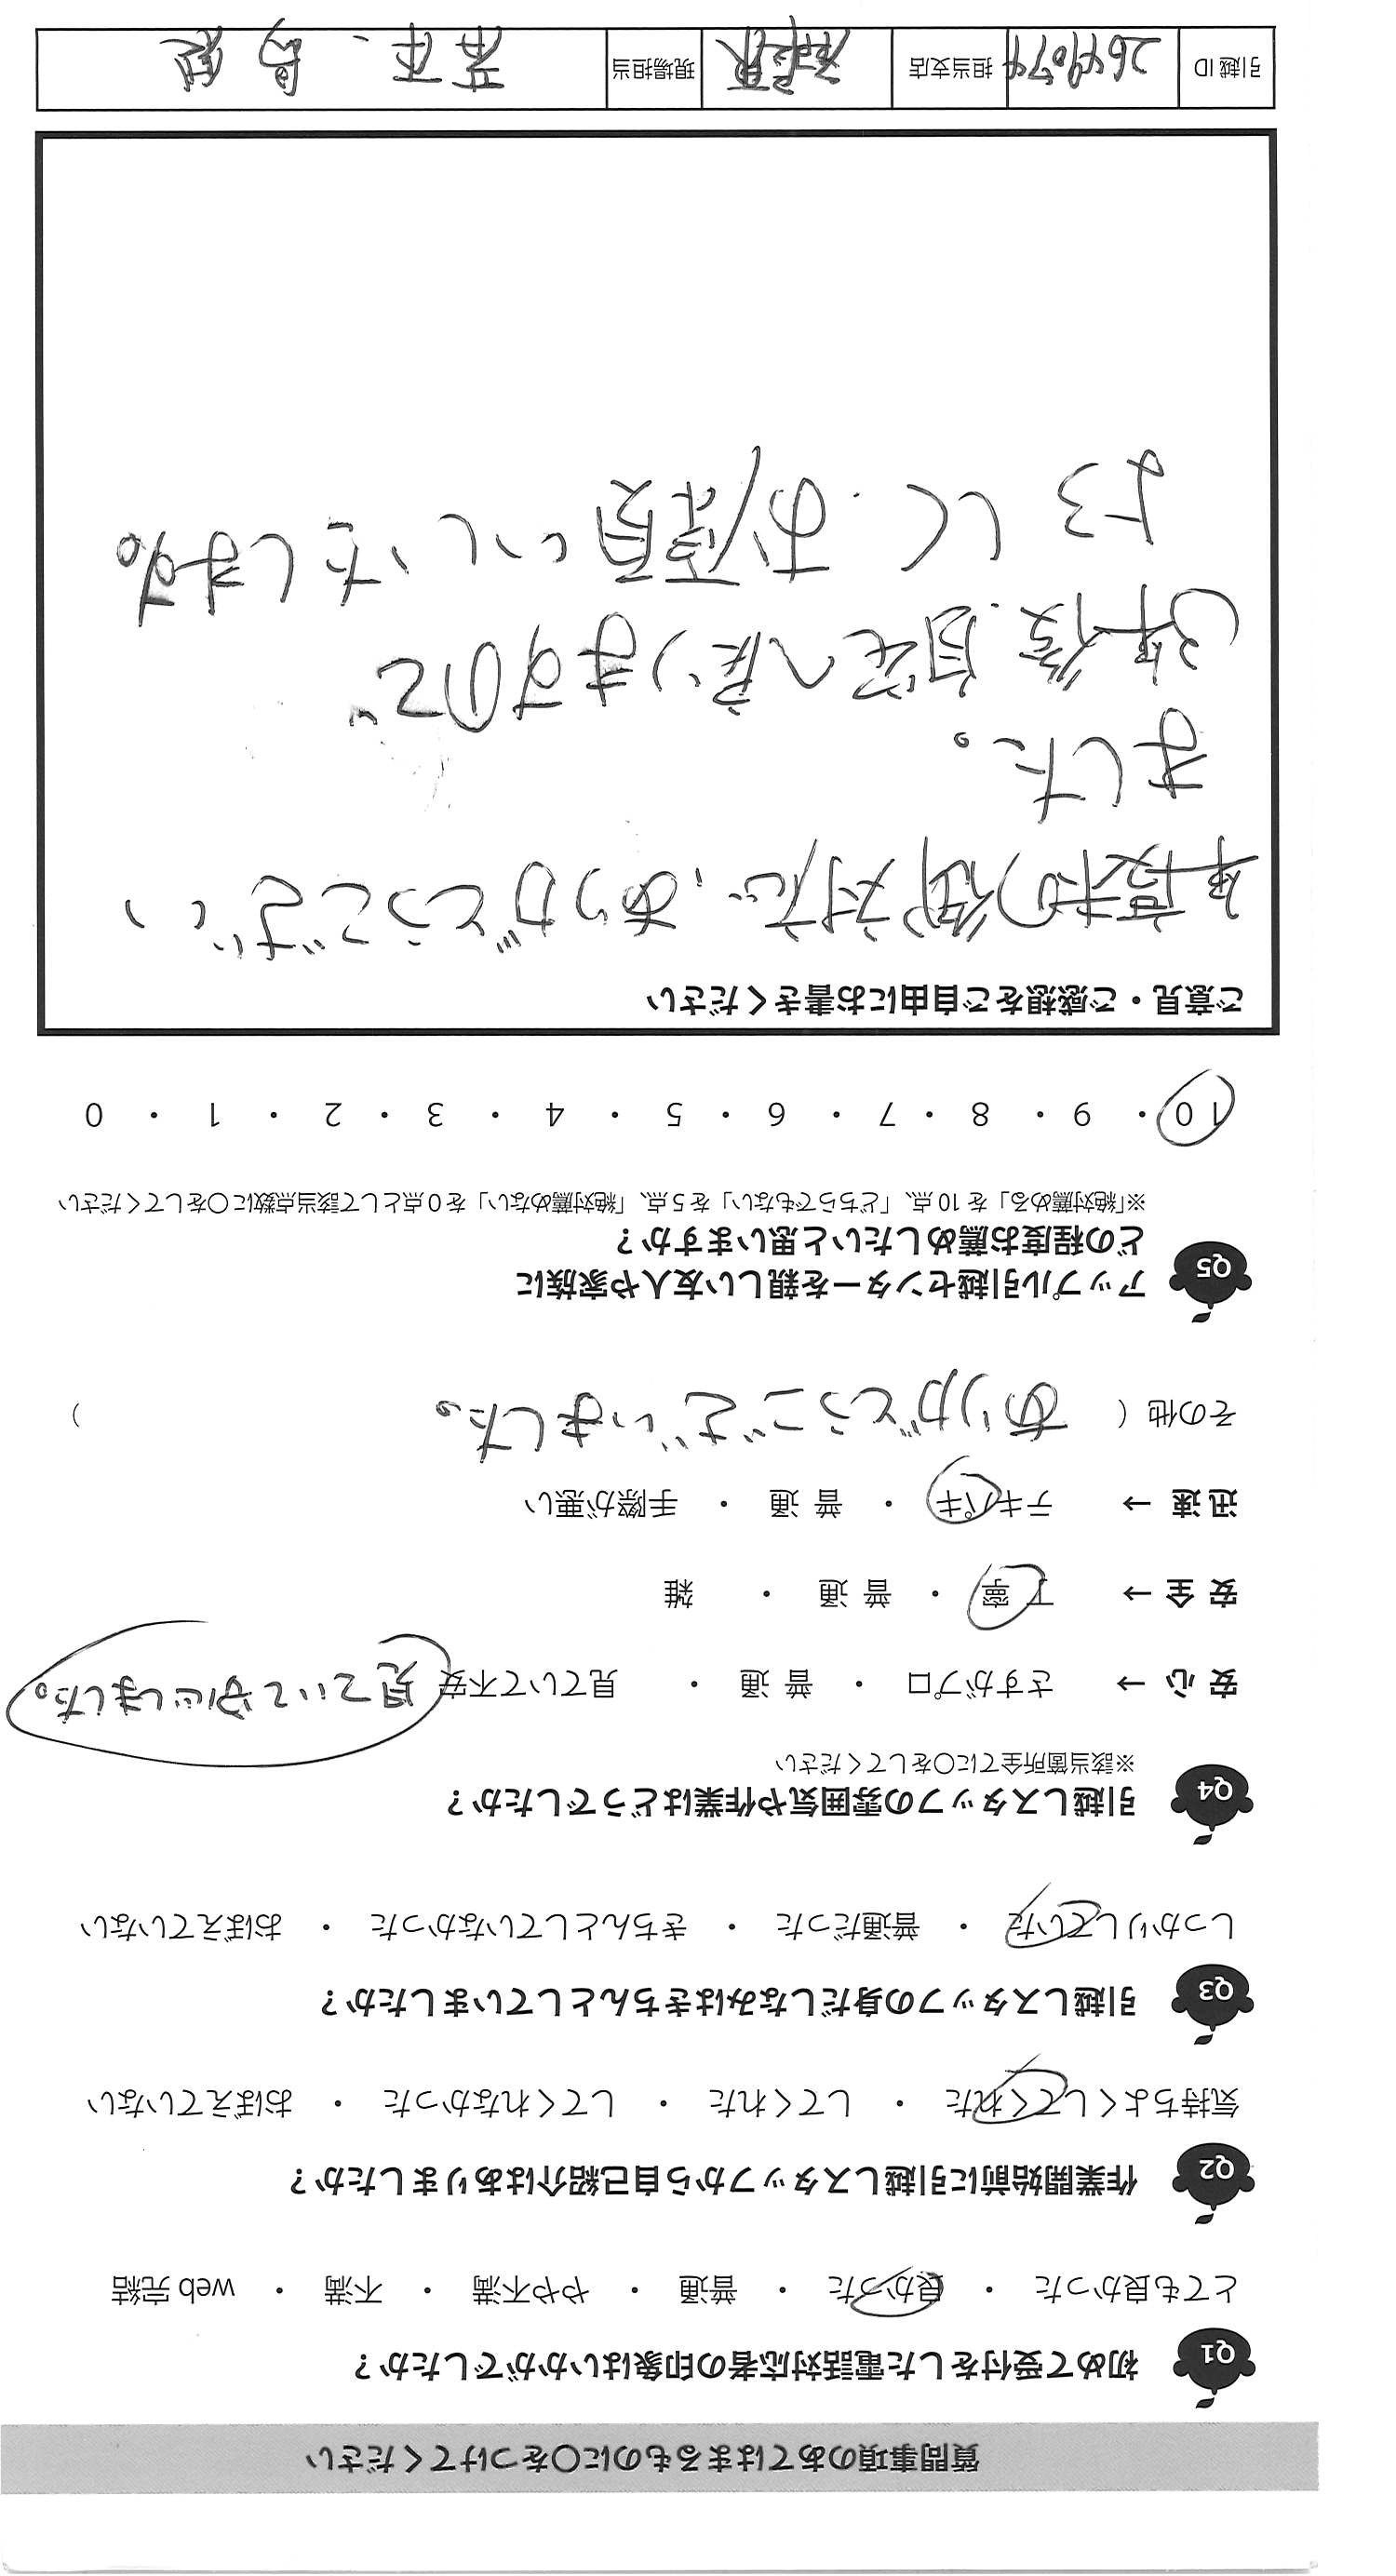 質問事項のあてはまるものに〇をつけてください
Q1 初めて受付をした電話対応者の印象はいかがでしたか？
とても良かった ・ 良かった ・ 普通 ・ やや不満 ・ 不満 ・ web 完結
Q2 作業開始前に引越しスタッフから自己紹介はありましたか？
気持ちよくしてくれた ・ してくれた ・ してくれなかった ・ おぼえていない
Q3 引越しスタッフの身だしなみはきちんとしていましたか？
しっかりしていた ・ 普通だった ・ きちんとしていなかった ・ おぼえていない
Q4 引越しスタッフの雰囲気や作業はどうでしたか？
※該当箇所全てに〇をしてください
安 心 → さすがプロ ・ 普 通 ・ 見ていて不安 見ていて安心しました。
安 全 → 丁 寧 ・ 普 通 ・ 雑
迅 速 → テキパキ ・ 普 通 ・ 手際が悪い
その他（ ありがとうございました。 ）
Q5 アップル引越センターを親しい友人や家族に
どの程度お薦めしたいと思いますか？
※「絶対薦める」を 10 点、「どちらでもない」を 5 点、「絶対薦めない」を 0 点として該当点数に〇をしてください
10 ・ 9 ・ 8 ・ 7 ・ 6 ・ 5 ・ 4 ・ 3 ・ 2 ・ 1 ・ 0
ご意見・ご感想をご自由にお書きください
年度末の御対応、ありがとうござい
ました。
3年後、自宅へ戻りますので
よろしく、お願いいたします。
引越 ID 2649074 担当支店 現場担当